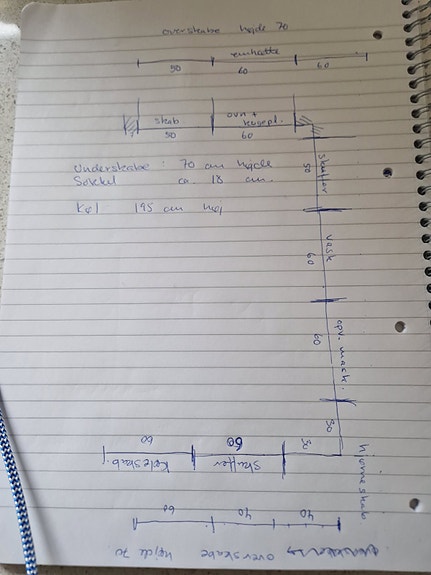 overskabe højde 70
emhætte
50 60 60
skab ovn + kogepl.
50 60
skuffer
50
Underskabe : 70 cm højde
Sokkel ca. 18 cm.
Køl 195 cm høj
vask
60
opv. mask.
60
30
hjørneskab
30
60
skuffer
60
Køleskab.
40
40
60
overskabe højde 70.